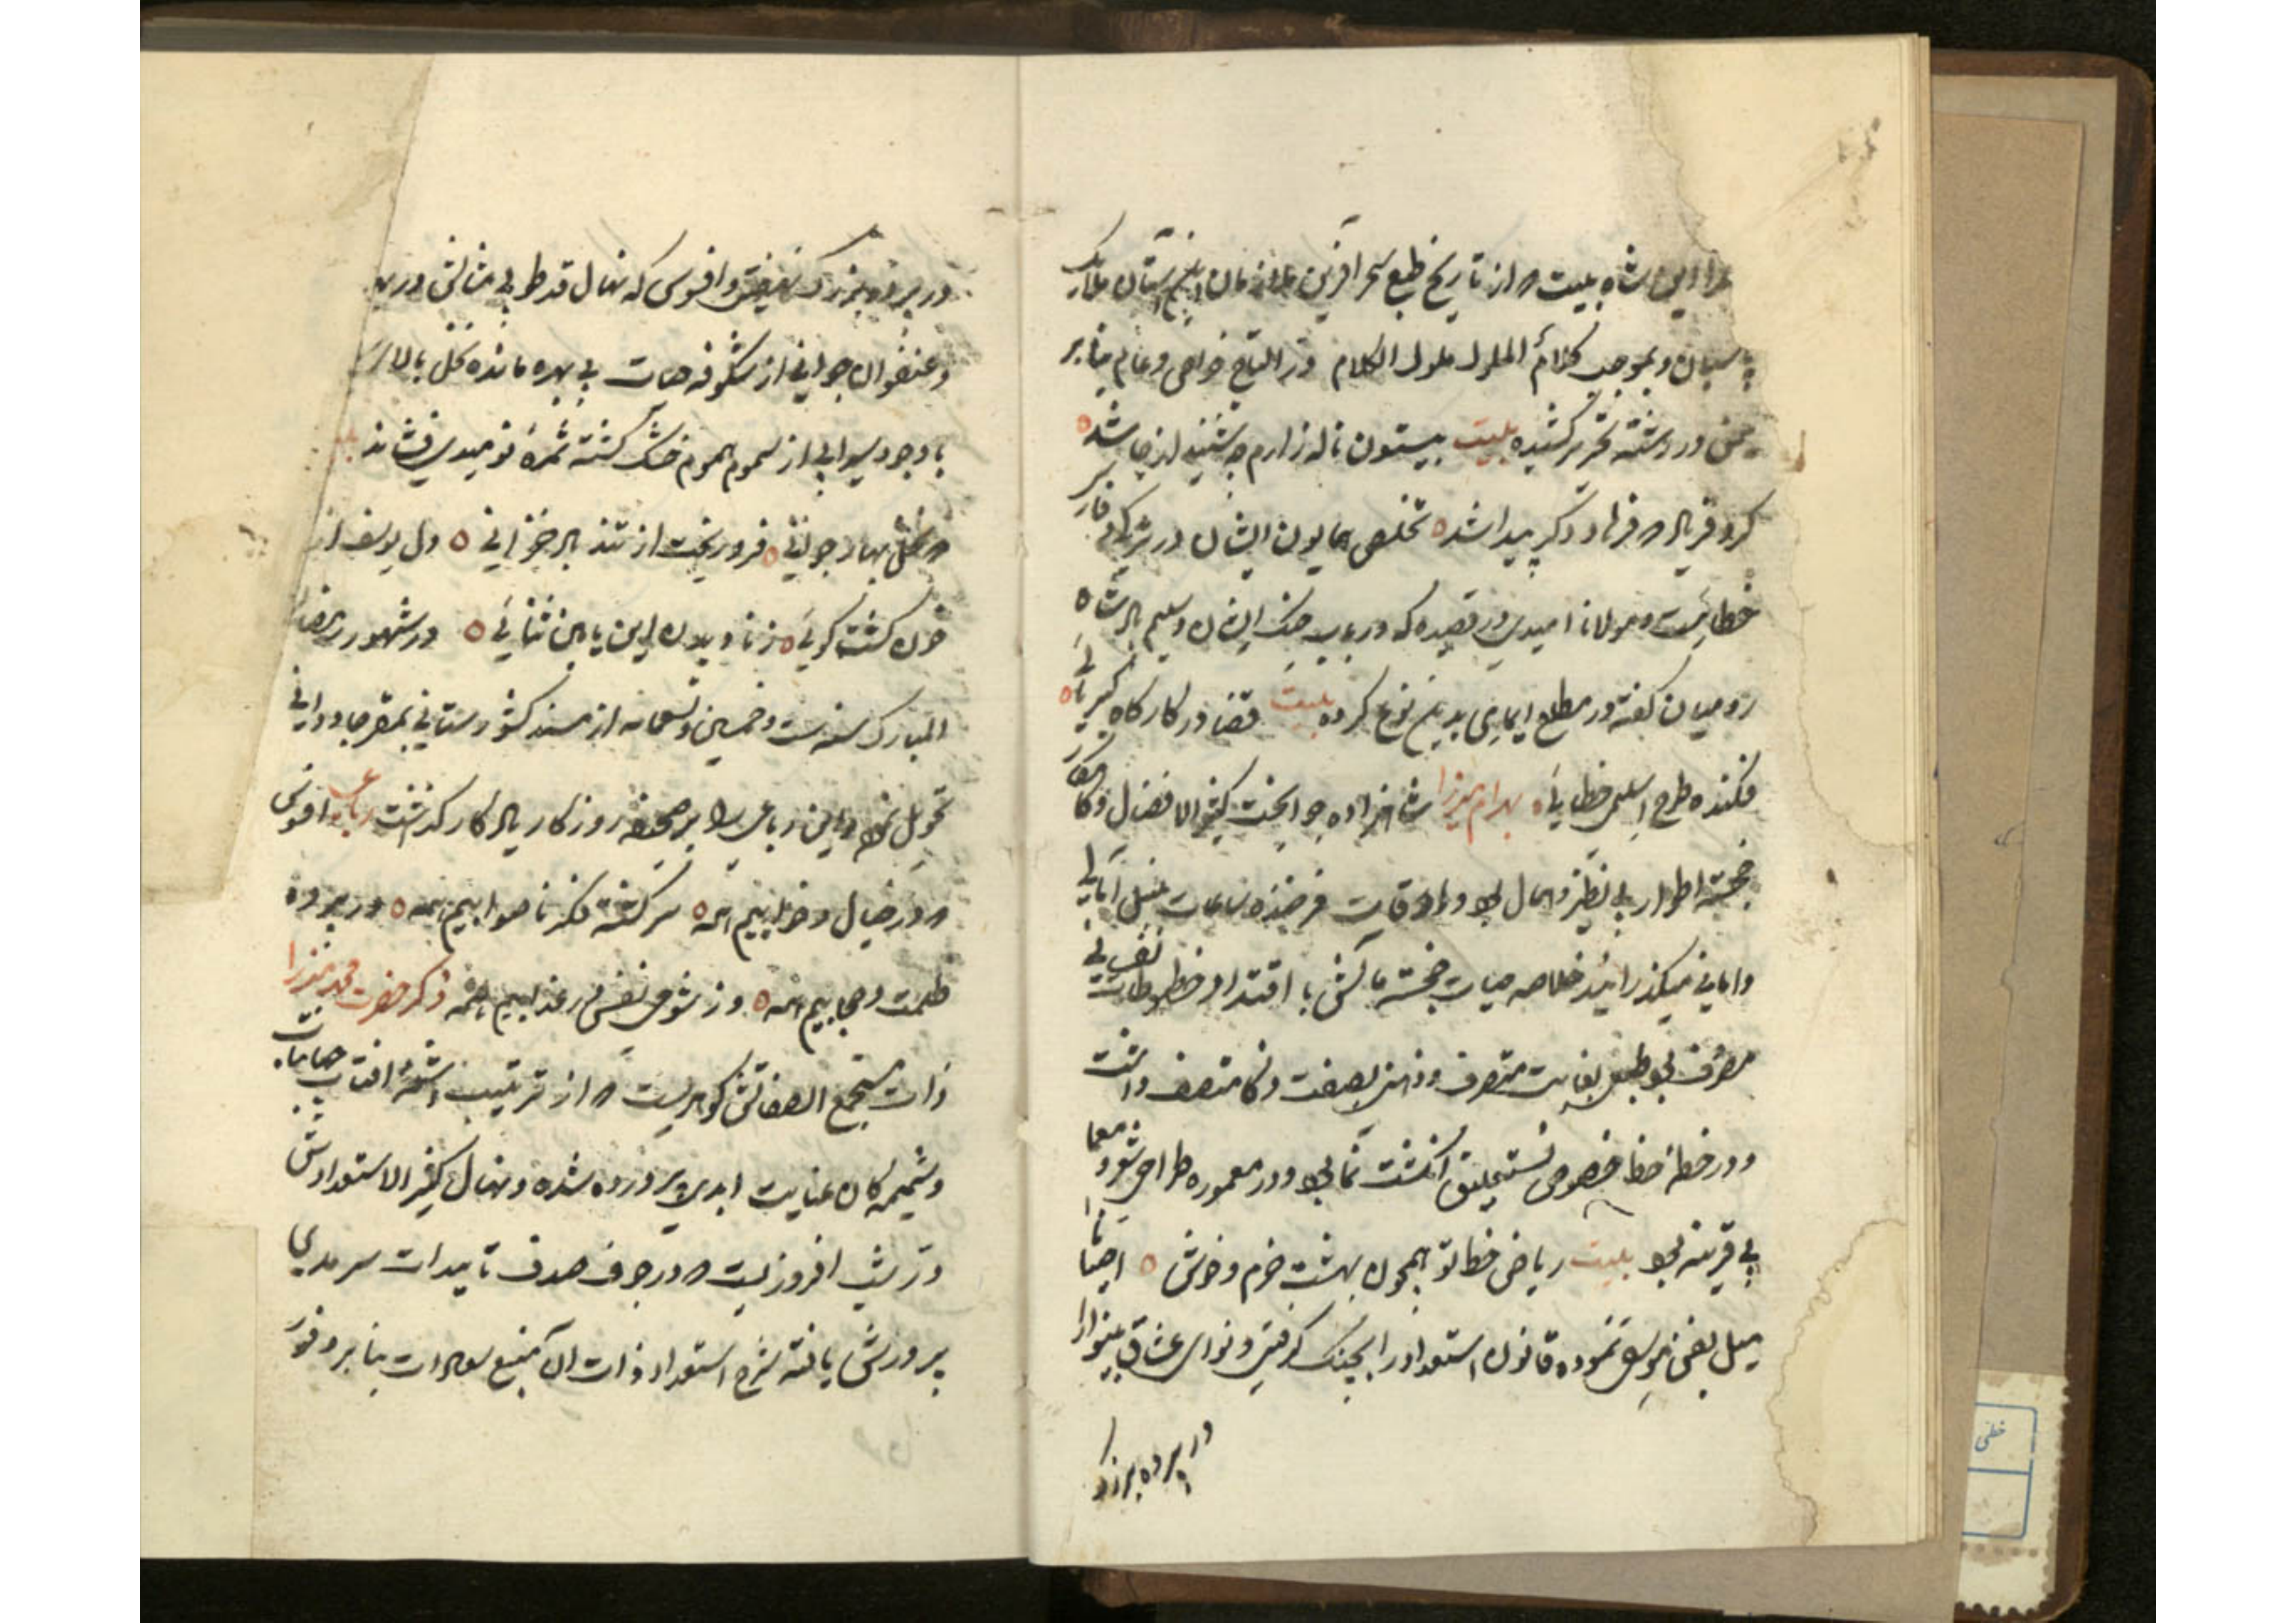 شاه بیت از تاریخ طبع سحر آفرین ملازمان این آستان ملایک
پاسبان و بموجب کلام الملوک ملوک الکلام در التیاج خواص و عوام
در رشته تحریر کشیده بیت بیستون ناله زارم چو شنید از جا شد
کرد فریاد که فرهاد دگر پیدا شد تخلص همایون ایشان در ترکی و فارسی
خطائیست و مولانا امیدی در قصیده که در باب جنگ ایشان و سلیم پادشاه
رومیان گفته در مطلع ایمایی بدین نوع کرده بیت قضا در کارگاه کبریائی
فکنده طرح اسلیمی خطایی بهرام میرزا شاهزاده جوانبخت کثیر الافضال
خجسته اطوار بی نظیر و همال بود و اوقات فرخنده ساعات
و امانی میگذرانید خلاصه حیات خجسته مآلش با اقتدا و خط
مصروف بود طبعی بغایت متصرف و ذهنی بصفت ذکا متصف داشت
و در خطه خط خصوص نستعلیق انگشت نما بود و در معموره طراحی شعر و معما
بی قرینه بود بیت ریاض خط تو همچون بهشت خرم و خوش احیانا
میل بفن موسیقی نموده قانون استعداد را بچنگ گرفتی و نوای عشاق بینوا را
در پرده بزرک
در پرده بزرک نهفتی و افسوس که نهال قد طوبی مثالش در
و عنفوان جوانی از شکوفه حیات بی بهره مانده نخل بالای
با وجود سیرابی از سموم هموم خشک گشته ثمره نومیدی فشاند
که نخل بهار جوانی فرو ریخت از تند باد خزانی دل یوسف از
خون گشت گوئی ز نادیدن ابن یامین ثنائی در شهور رمضان
المبارک سنه ست و خمسین و تسعمائه از مسند کشورستانی بمقر جاودانی
تحویل نمود و این رباعی را بر صحیفه روزگار یادگار گذاشت رباعی افسوس
که در خیال و خوابیم همه سرگشته فکر ناصوابیم همه در پرده
ظلمت و حجابیم همه وز شومی نفس در عذابیم همه ذکر حضرت محمد میرزا
ذات مستجمع الصفاتش گوهریست که از ترتیب اشعه افتاب
و شمیمه کان عنایت ابدی پرورده شده و نهال کثیر الاستعدادش
در شب افروزیست که در جوف صدف تاییدات سرمدی
پرورش یافته شرح استعداد ذات آن منبع سعادات بنابر وفور
خطی